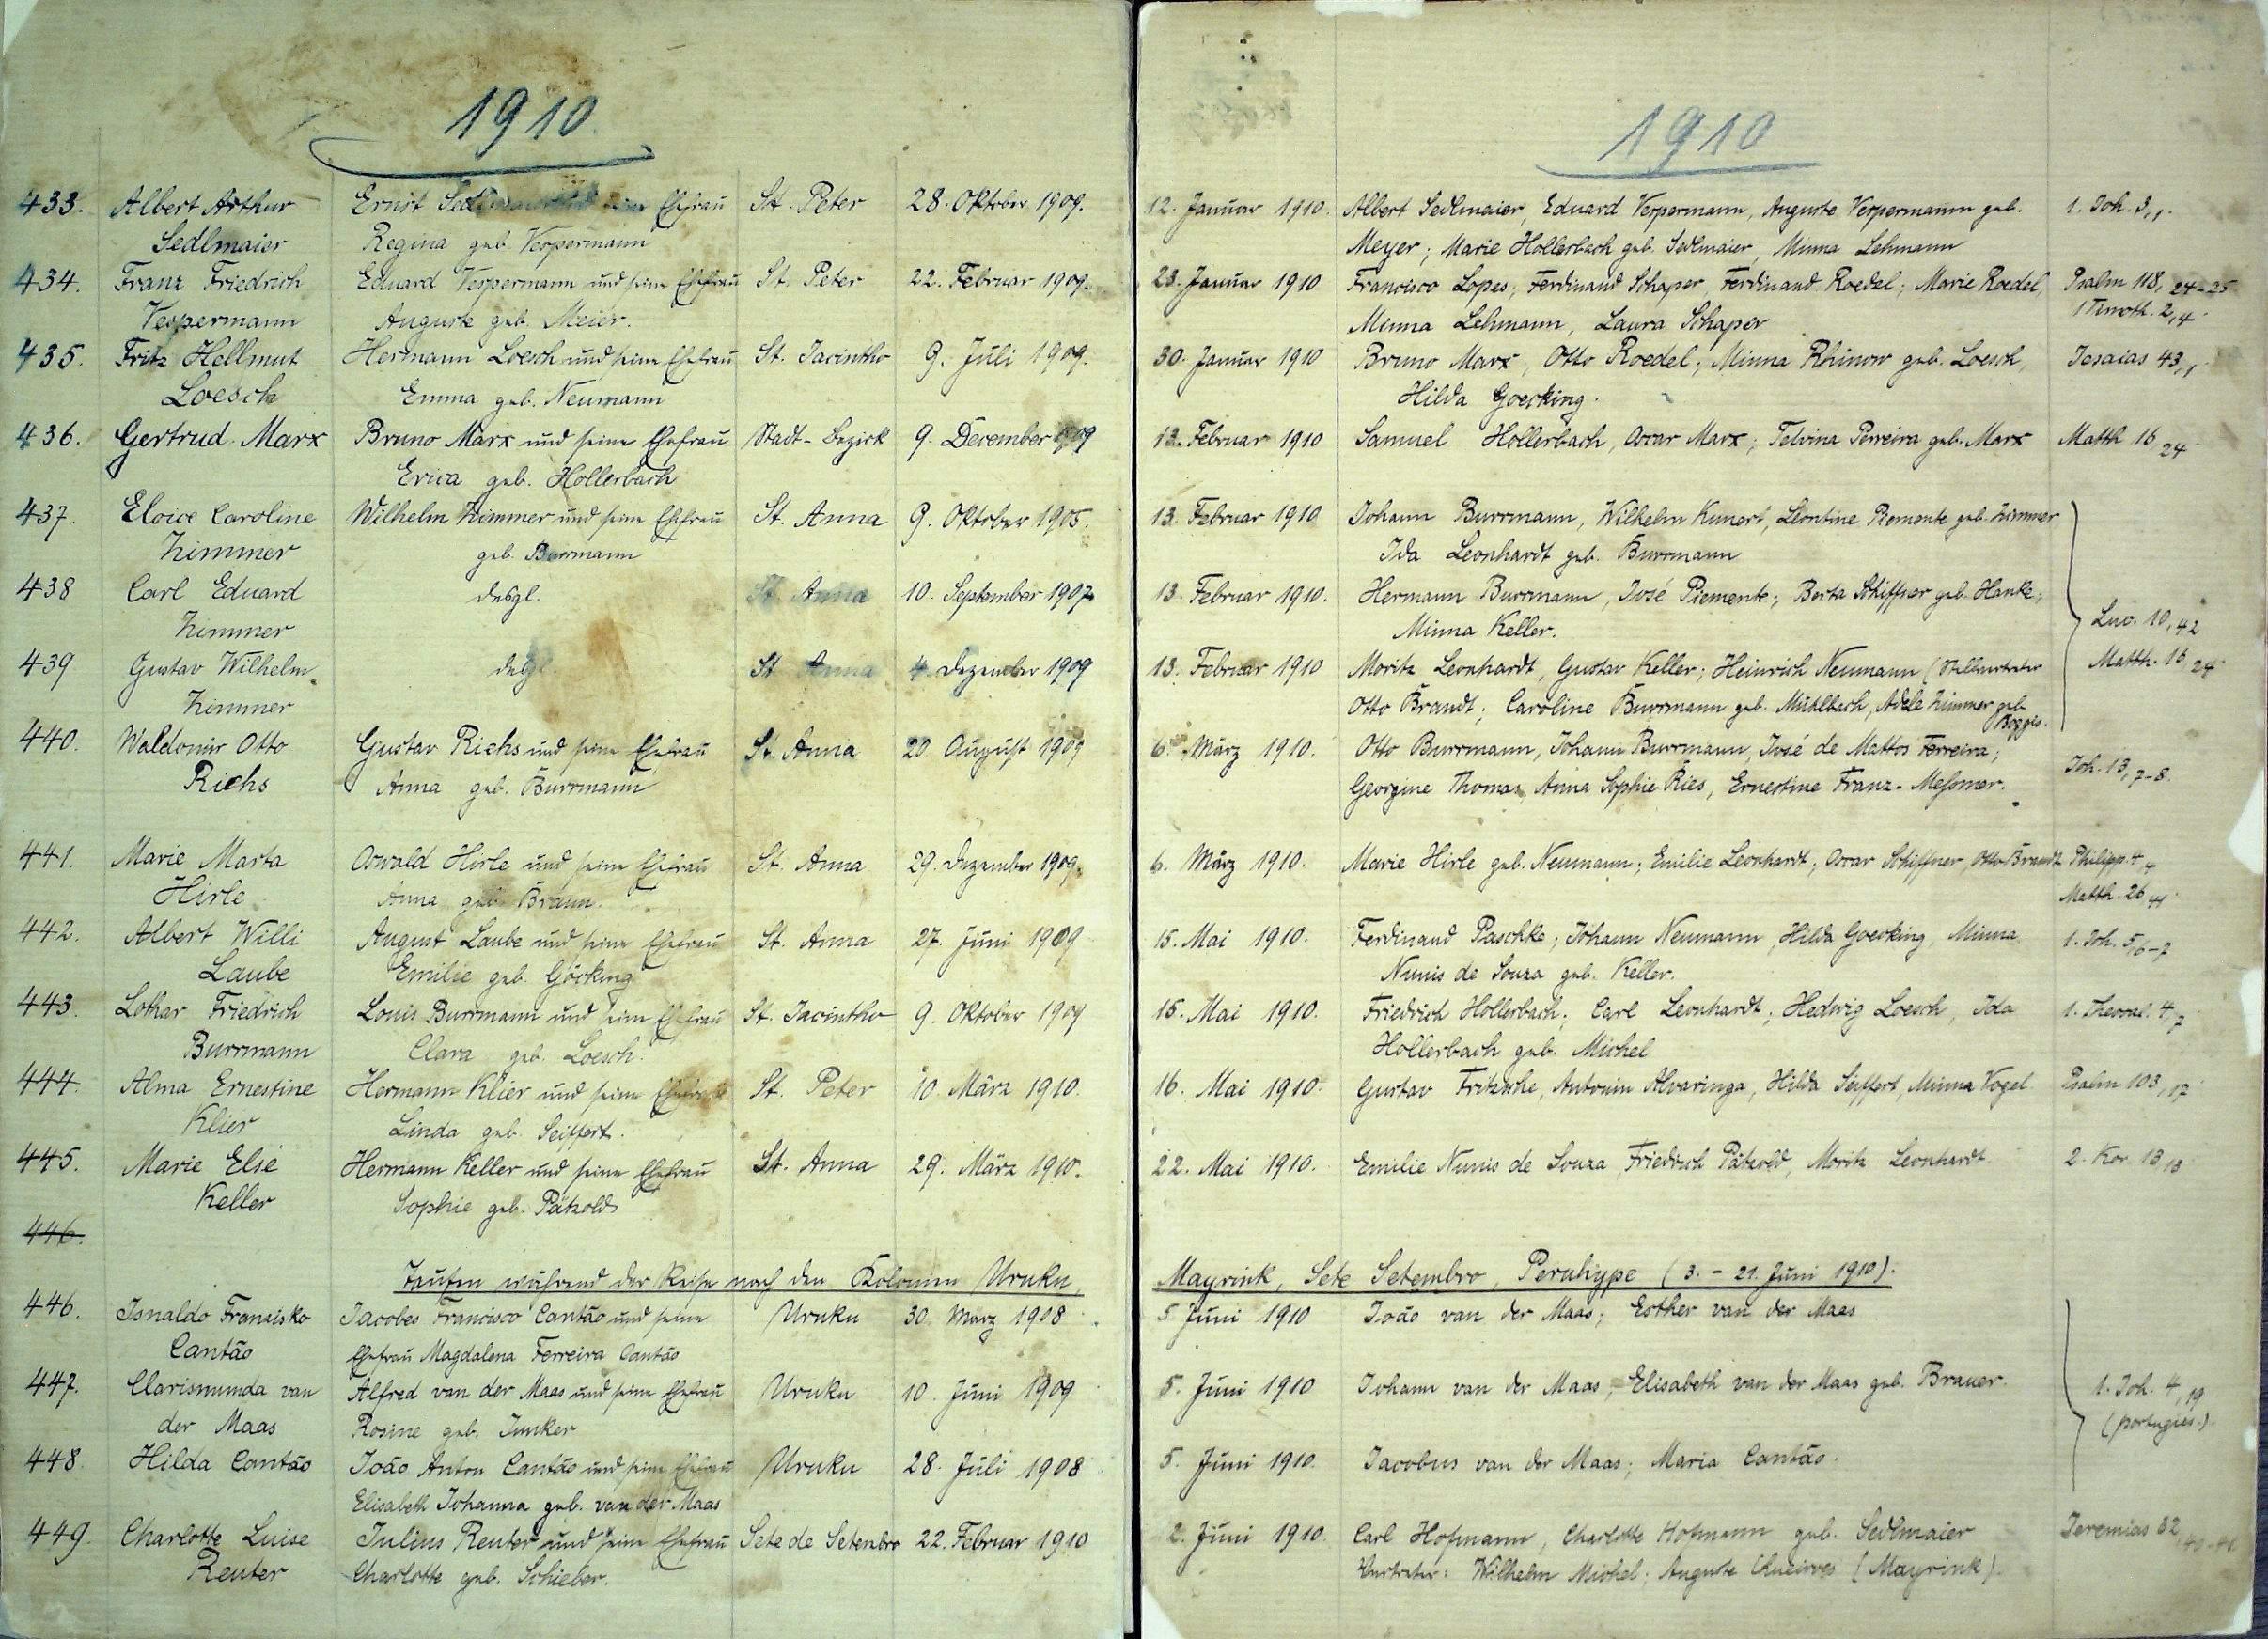 1910.
433. Albert Arthur Ernst Sedlmaier und seine Ehefrau St. Peter 28. Oktober 1909.
Sedlmaier Regina geb. Vespermann
434. Franz Friedrich Eduard Vespermann und seine Ehefrau St. Peter 22. Februar 1909.
Vespermann Auguste geb. Meier.
435. Fritz Hellmut Hermann Loesch und seine Ehefrau St. Jacintho 9. Juli 1909.
Loesch Emma geb. Neumann
436. Gertrud Marx Bruno Marx und seine Ehefrau Stadt-Bezirk 9. December 1909
Erica geb. Hollerbach
437. Eloice Caroline Wilhelm Zimmer und seine Ehefrau St. Anna 9. Oktober 1905.
Zimmer geb. Burrmann
438 Carl Eduard desgl. St. Anna 10. September 1907.
Zimmer
439 Gustav Wilhelm desgl. St Anna 4. Dezember 1909
Zimmer
440. Waldomir Otto Gustav Richs und seine Ehefrau St. Anna 20 August 1909
Richs Anna geb. Burrmann
441. Marie Marta Oswald Hirle und seine Ehefrau St. Anna 29. Dezember 1909.
Hirle Anna geb. Braun.
442. Albert Willi August Laube und seine Ehefrau St. Anna 27. Juni 1909
Laube Emilie geb. Göcking
443. Lothar Friedrich Louis Burrmann und seine Ehefrau St. Jacintho 9. Oktober 1909
Burrmann Clara geb. Loesch.
444. Alma Ernestine Hermann Klier und seine Ehefrau St. Peter 10. März 1910.
Klier Linda geb. Seiffert.
445. Marie Else Hermann Keller und seine Ehefrau St. Anna 29. März 1910.
Keller Sophie geb. Pätzold
446.
Taufen während der Reise nach den Kolonien Uruku,
446. Isnaldo Fransisko Jacobes Francisco Cantão und seine Uruku 30. März 1908.
Cantão Ehefrau Magdalena Ferreira Cantão
447. Clarismunda van Alfred van der Maas und seine Ehefrau Uruku 10. Juni 1909
der Maas Rosine geb. Junker
448 Hilda Cantão João Anton Cantão und seine Ehefrau Uruku 28. Juli 1908
Elisabeth Johanna geb. van der Maas
449. Charlotte Luise Julius Reuter und seine Ehefrau Sete de Setembro 22. Februar 1910
Reuter Charlotte geb. Schieber.
1910
12. Januar 1910. Albert Sedlmaier, Eduard Vespermann, Auguste Vespermann geb. 1. Joh. 3,1.
Meyer; Marie Hollerbach geb. Sedlmaier, Minna Lehmann
23. Januar 1910 Francisco Lopes; Ferdinand Schaper Ferdinand Roedel; Marie Roedel, Psalm 118, 24-25
Minna Lehmann, Laura Schaper 1 Timoth. 2,4.
30. Januar 1910 Bruno Marx, Otto Roedel; Minna Rhinow geb. Loesch, Jesaias 43,1.
Hilda Goecking.
13. Februar 1910 Samuel Hollerbach, Oscar Marx; Telvina Perreira geb. Marx Matth 16 24.
13. Februar 1910 Johann Burrmann, Wilhelm Kunert, Leontine Piemente geb. Zimmer
Ida Leonhardt geb. Burrmann
13. Februar 1910. Hermann Burrmann, José Piemente; Berta Schiffner geb. Hanke;
Minna Keller. Luc. 10,42
13. Februar 1910 Moritz Leonhardt, Gustav Keller; Heinrich Neumann (Stellvertreter Matth. 16,24.
Otto Brandt; Caroline Burrmann geb. Mühlbach, Adele Zimmer geb
6. März 1910. Otto Burrmann, Johann Burrmann, José de Mattos Ferreira; Joh. 13,7-8.
Georgine Thomas, Anna Sophie Ries, Ernestine Franz-Meßmer.
6. März 1910. Marie Hirle geb. Neumann; Emilie Leonhardt; Oscar Schiffner, Otto Brandt Philipp. 4,4
Matth. 26 41.
15. Mai 1910. Ferdinand Paschke; Johann Neumann, Hilda Goecking, Minna 1. Joh. 5,6-7
Nunis de Souza geb. Keller.
15. Mai 1910. Friedrich Hollerbach; Carl Leonhardt; Hedwig Loesch, Ida 1. Thessal. 4,7
Hollerbach geb. Michel
16. Mai 1910. Gustav Fritzsche, Antonin Alvaringa, Hilda Seiffert, Minna Vogel Psalm 103,17
22. Mai 1910. Emilie Nunis de Souza, Friedrich Pätzold, Moritz Leonhardt 2. Kor. 13,13
Mayrink, Sete Setembro, Peruhype (3. - 21. Juni 1910).
5 Juni 1910 João van der Maas; Esther van der Maas
5. Juni 1910 Johann van der Maas; Elisabeth van der Maas geb. Brauer. 1. Joh. 4,19
(portugies.).
5. Juni 1910. Jacobus van der Maas; Maria Cantão.
2. Juni 1910. Carl Hofmann, Charlotte Hofmann geb. Sedlmaier Jeremias 32
Vertreter: Wilhelm Michel; Auguste (Mayrink).